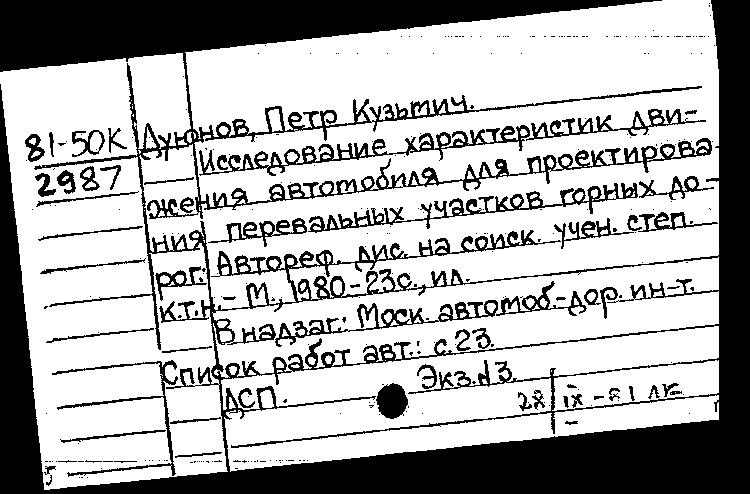 81-50К
2987
Дуюнов, Петр Кузьмич.
Исследование характеристик дви-
жения автомобиля для проектирова-
ния перевальных участков горных до-
рог: Автореф. дис. на соиск. учен. степ.
к.т.н. - М., 1980 - 23с., ил.
В надзаг.: Моск. автомоб-дор. ин-т.
Список работ авт.: с. 23.
ДСП. Экз. 3.
28 IX - 81
5